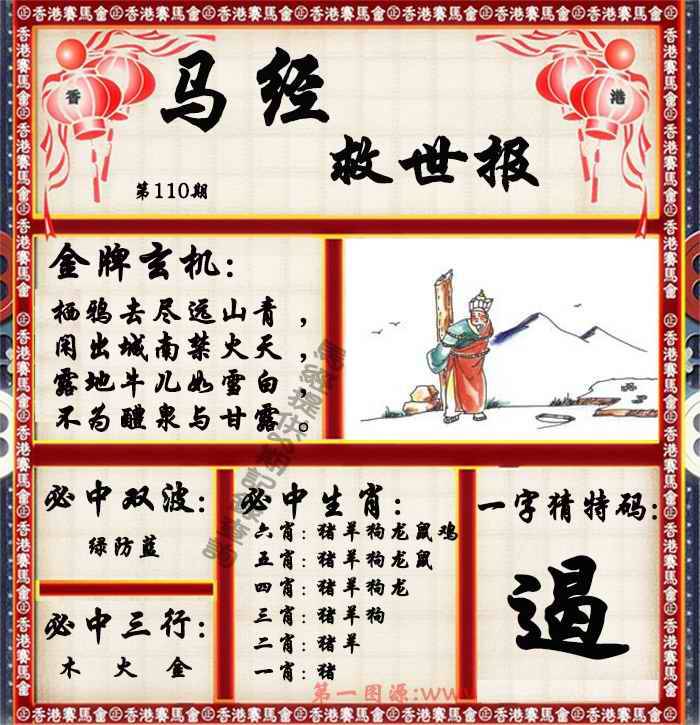 香港賽馬會㊣香港賽馬會㊣香港賽馬會㊣香港賽馬會㊣香港賽馬會㊣香港賽馬會
香
港
马经
救世报
第110期
金牌玄机：
栖鸦去尽远山青，
闲出城南禁火天，
露地牛儿如雪白，
不为醴泉与甘露。
必中双波：
绿防蓝
必中三行：
木 火 金
必中生肖：
六肖：猪羊狗龙鼠鸡
五肖：猪羊狗龙鼠
四肖：猪羊狗龙
三肖：猪羊狗
二肖：猪羊
一肖：猪
一字猜特码：
遏
第一图源:www